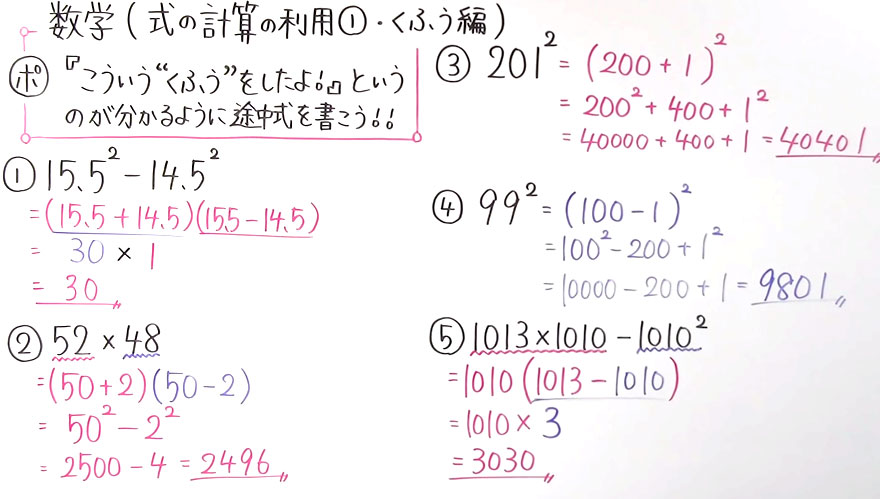 数学(式の計算の利用①・くふう編)
ポ 『こういう“くふう”をしたよ!』という
のが分かるように途中式を書こう!!
① 15.5² − 14.5²
= (15.5 + 14.5)(15.5 − 14.5)
= 30 × 1
= 30
② 52 × 48
= (50 + 2)(50 − 2)
= 50² − 2²
= 2500 − 4 = 2496
③ 201² = (200 + 1)²
= 200² + 400 + 1²
= 40000 + 400 + 1 = 40401
④ 99² = (100 − 1)²
= 100² − 200 + 1²
= 10000 − 200 + 1 = 9801
⑤ 1013 × 1010 − 1010²
= 1010 (1013 − 1010)
= 1010 × 3
= 3030